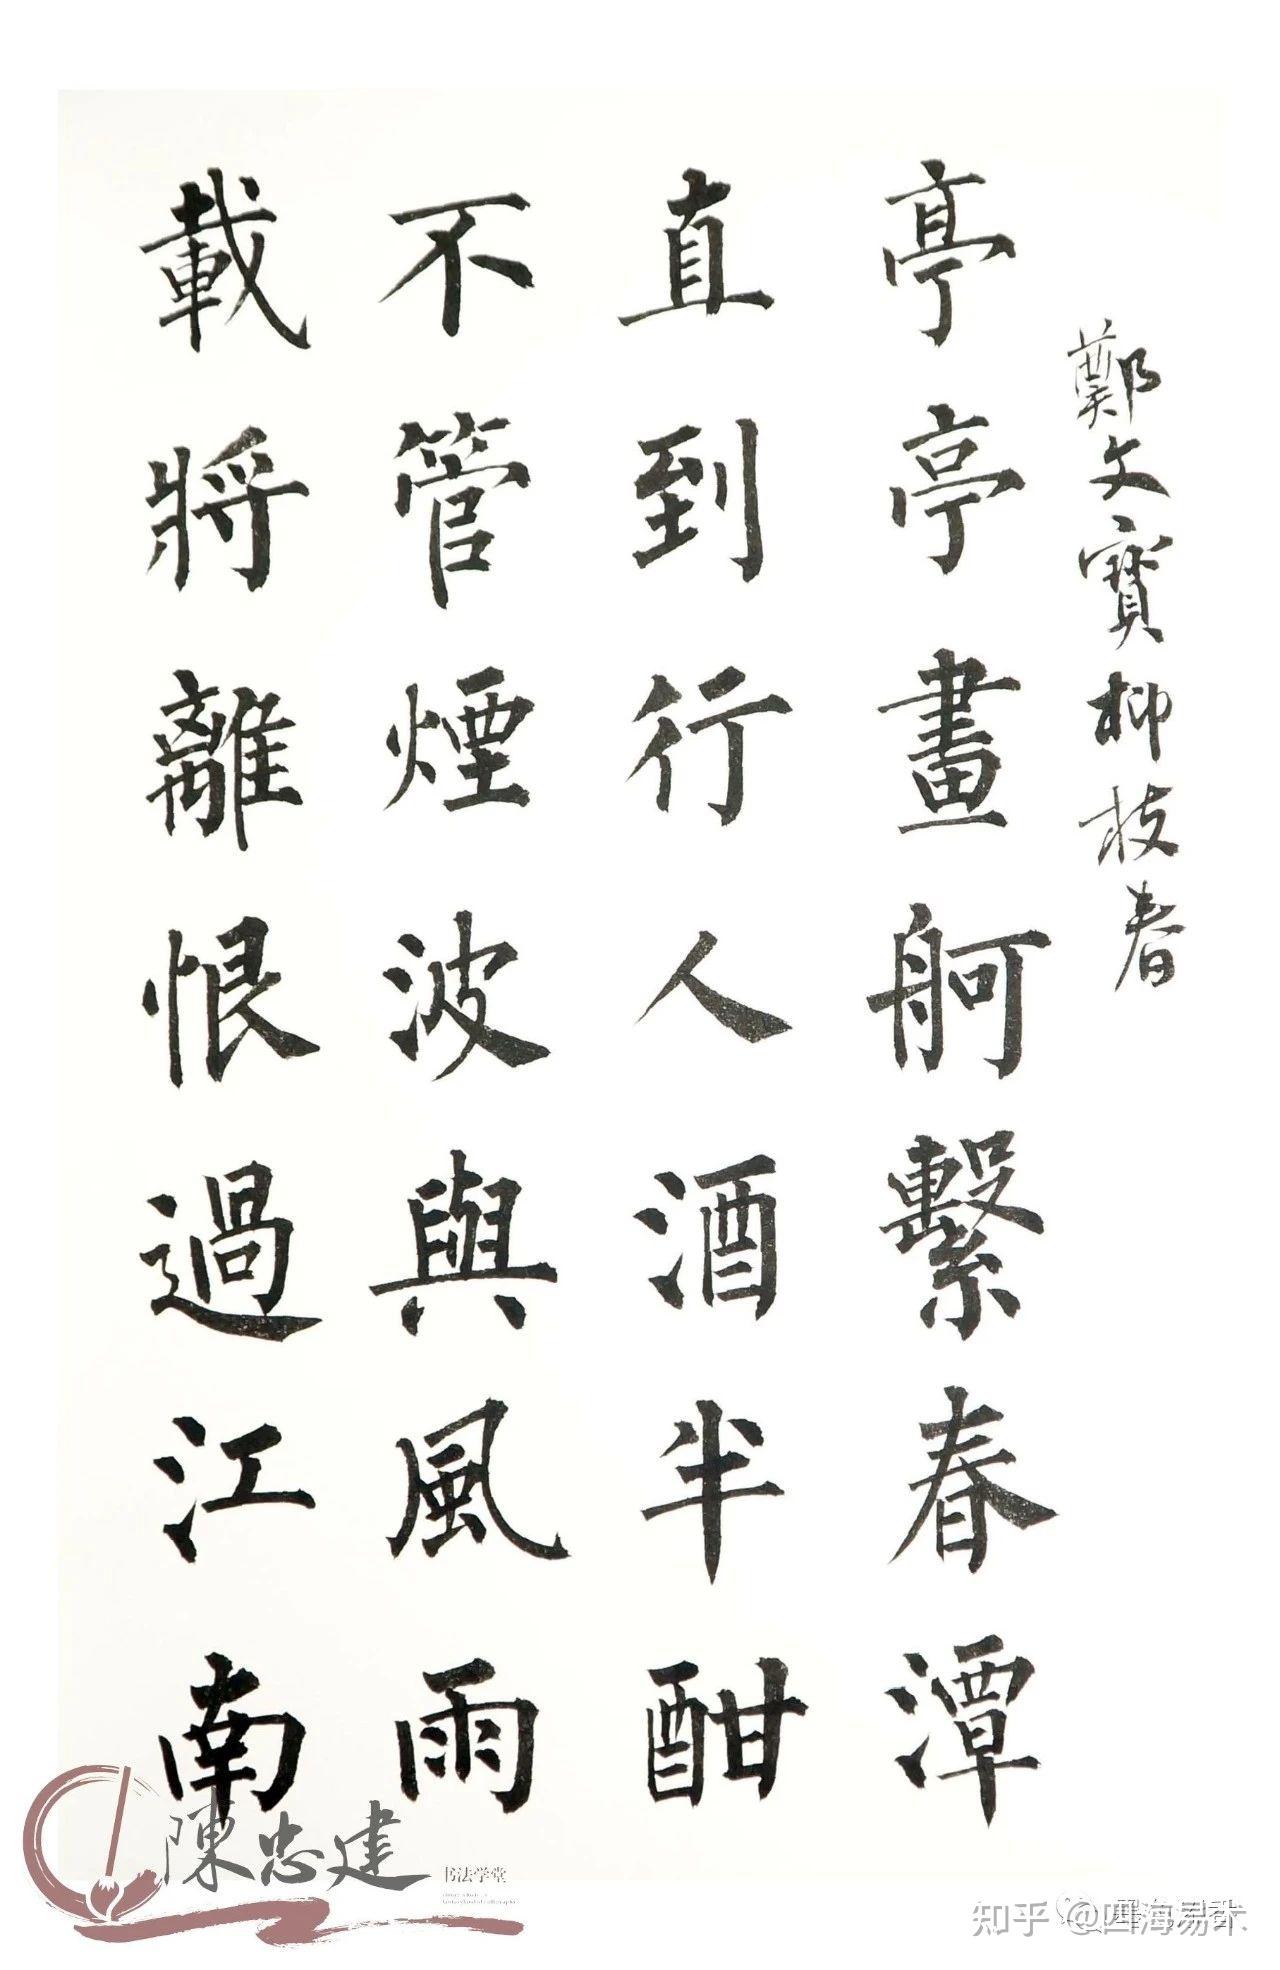 鄭文寶柳枝春
亭亭畫舸繫春潭
直到行人酒半酣
不管煙波與風雨
載將離恨過江南
陳忠建
书法学堂
知乎 @四海易术